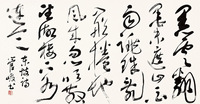 黑雲翻
墨未遮山
白雨跳珠亂
入船卷地風
來忽吹散
望湖樓下水
如天
東坡詩
書